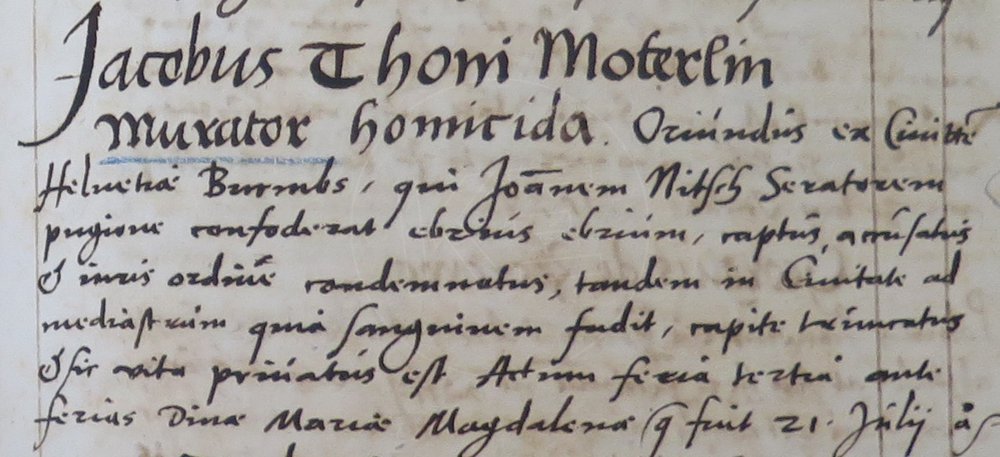 Jacobus Thoni Moterlin
Murator homicida. Oriúndús ex Ciuitte
Helvetiæ Burmbs, qui Joānem Nitsch Seratorem
pugione confoderat ebriús ebriúm, captús, accúsatús
& iuris ordine condemnatus, tandem in Ciuitate ad
mediastrúm quia sanguinem fudit, capite trúncatus
& sic vita priúatús est Actum feria tertia ante
ferias Diuæ Mariæ Magdalenæ q fuit 21. Júlij